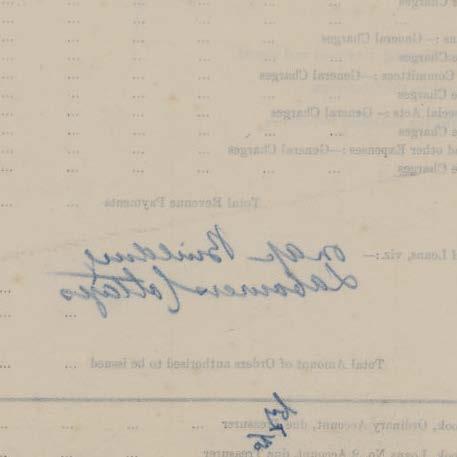 r Charges ... ... ... ... ...
ns :—General Charges ... ... ...
e Charges ... ... ... ... ...
Committees :—General Charges ... ...
e Charges ... ... ... ... ...
ecial Acts :—General Charges ... ...
e Charges ... ... ... ... ...
nd other Expenses :—General Charges ... ...
e Charges ... ... ... ... ...
Total Revenue Payments ... ... ...
f Loans, viz. :—
Building
Labourers Cottages ...
...
Total Amount of Orders authorised to be issued ... ...
ook, Ordinary Account, due Treasurer ... ... ...
ook, Loans No. 2 Account, due Treasurer ... ...